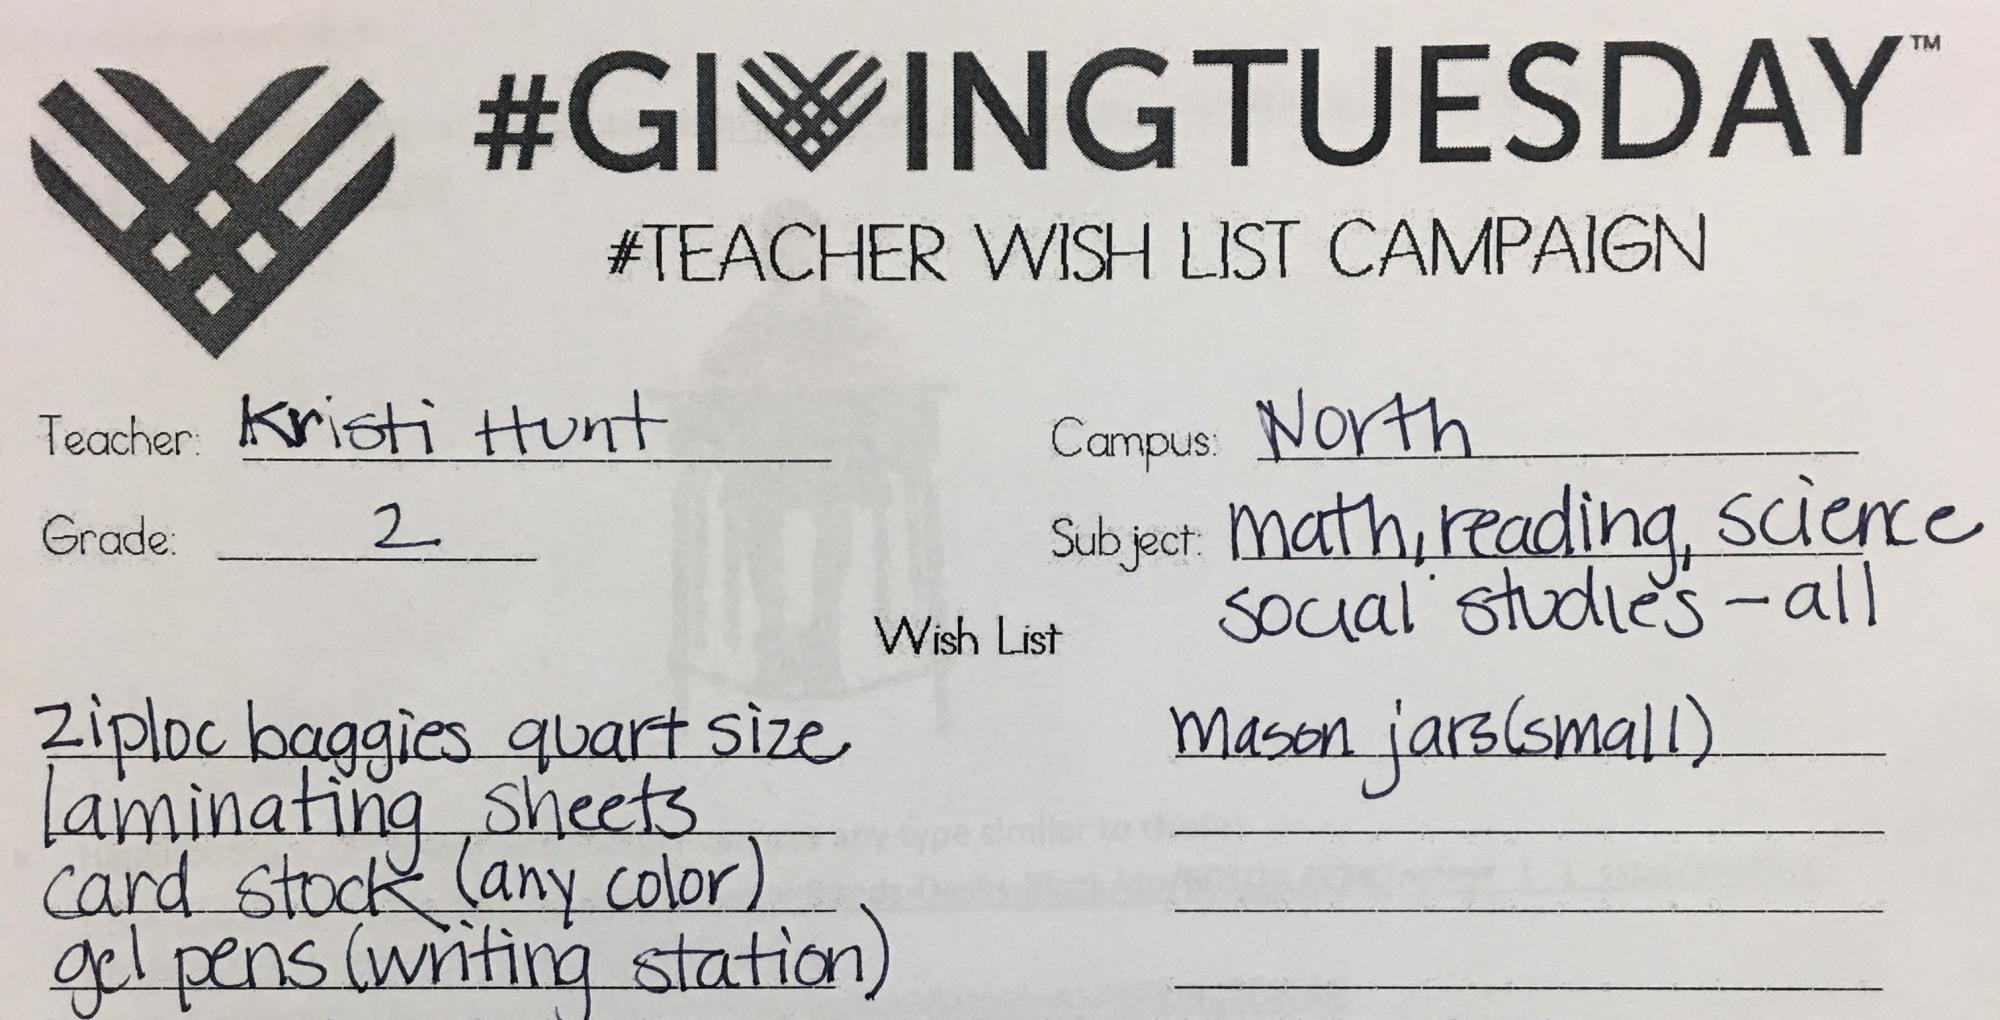 #GIVINGTUESDAY™
#TEACHER WISH LIST CAMPAIGN
Teacher: Kristi Hunt
Campus: North
Grade: 2
Subject: math, reading, science
social studies - all
Wish List
Ziploc baggies quart size
laminating sheets
card stock (any color)
gel pens (writing station)
Mason jars (small)
any type similar to